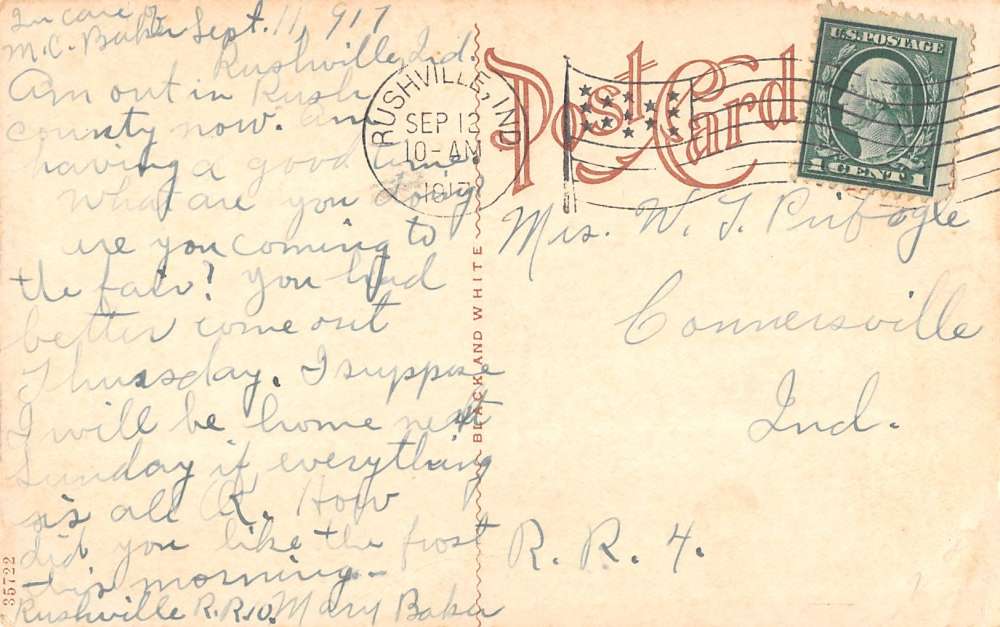 In care of
M.C. Baker Sept. 11, 917
Rushville, Ind.
Am out in Rush
county now. Am
having a good time.
What are you doing
are you coming to
the fair? You had
better come out
Thursday. I suppose
I will be home next
Sunday if everything
is all O.K. How
did you like the frost
this morning.-
Rushville R.R. 10. Mary Baker
35722
BLACK AND WHITE
Post Card
RUSHVILLE, IND
SEP 12
10-AM
1917
U.S. POSTAGE
1 CENT 1
Mrs. W. T. Pribogle
Connersville
Ind.
R. R. 4.